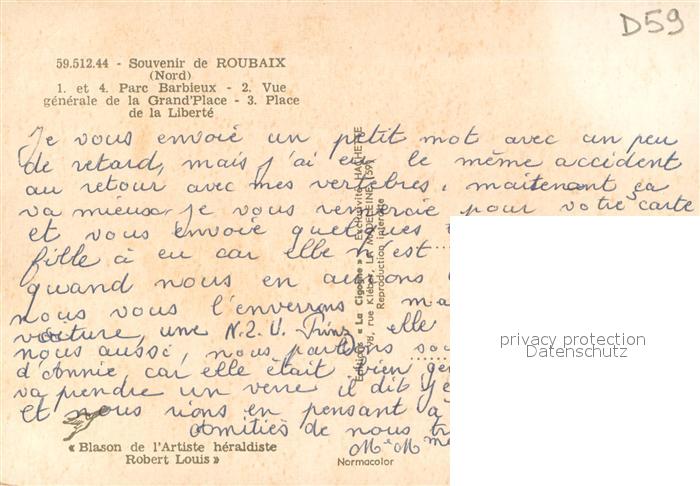 D59
59.512.44 - Souvenir de ROUBAIX
(Nord)
1. et 4. Parc Barbieux - 2. Vue
générale de la Grand'Place - 3. Place
de la Liberté
Je vous envoie un petit mot avec un peu
de retard, mais j'ai eu le même accident
au retour avec mes vertèbres, maitenant ça
va mieux, je vous remercie pour votre carte
et vous envoie quelques
fille à eu car elle n'est
quand nous en aurons
nous vous l'enverrons
voiture, une N.S.U. Prinz elle
nous aussi, nous partons
d'Annie car elle était bien
va prendre un verre il dit
Et nous rions en pensant à
Amitiés de nous
M. Mme
« Blason de l'Artiste héraldiste
Robert Louis »
Editions « La Cigogne » - Exclusivité HACHETTE
78, rue Kléber, LA MADELEINE (59)
Reproduction interdite
Normacolor
privacy protection
Datenschutz